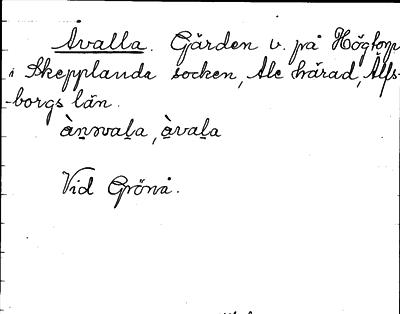 Åvalla. Gärden v. på Högtorp
i Skepplanda socken, Ale härad, Älfs-
-borgs län.
àṉvaḻa, àvaḻa
Vid Grönå.